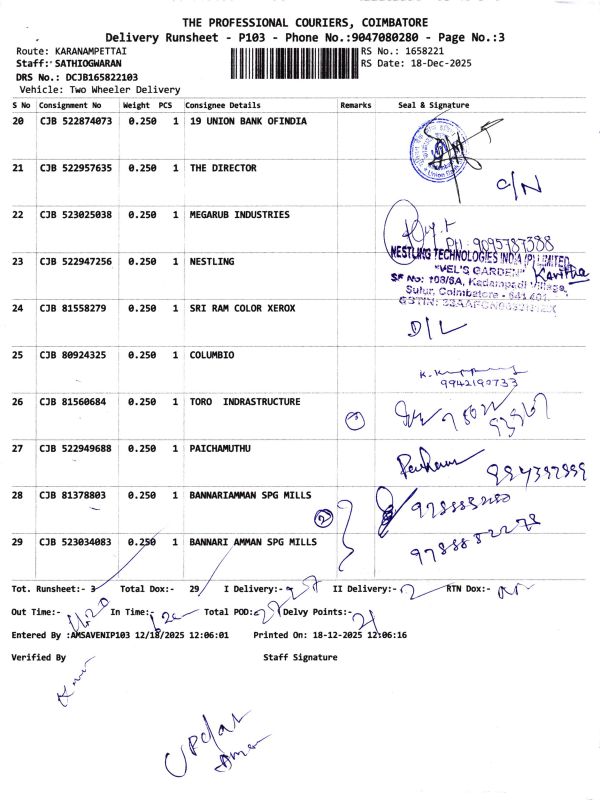 THE PROFESSIONAL COURIERS, COIMBATORE
Delivery Runsheet - P103 - Phone No.:9047080280 - Page No.:3
Route: KARANAMPETTAI RS No.: 1658221
Staff: SATHIOGWARAN RS Date: 18-Dec-2025
DRS No.: DCJB165822103
Vehicle: Two Wheeler Delivery
S No Consignment No Weight PCS Consignee Details Remarks Seal & Signature
20 CJB 522874073 0.250 1 19 UNION BANK OFINDIA
21 CJB 522957635 0.250 1 THE DIRECTOR C/N
22 CJB 523025038 0.250 1 MEGARUB INDUSTRIES
PH: 9095787388
23 CJB 522947256 0.250 1 NESTLING NESTLING TECHNOLOGIES INDIA (P) LIMITED
"VEL'S GARDEN" Kavitha
SF No: 108/6A, Kadampadi Village,
Sulur, Coimbatore - 641 401.
24 CJB 81558279 0.250 1 SRI RAM COLOR XEROX D/L
25 CJB 80924325 0.250 1 COLUMBIO
9942190733
26 CJB 81560684 0.250 1 TORO INDRASTRUCTURE
27 CJB 522949688 0.250 1 PAICHAMUTHU
28 CJB 81378803 0.250 1 BANNARIAMMAN SPG MILLS
2
29 CJB 523034083 0.250 1 BANNARI AMMAN SPG MILLS
Tot. Runsheet:- 3 Total Dox:- 29 I Delivery:- 27 II Delivery:- 2 RTN Dox:-
Out Time:- In Time:- Total POD:- 27 Delvy Points:- 21
Entered By :AMSAVENIP103 12/18/2025 12:06:01 Printed On: 18-12-2025 12:06:16
Verified By Staff Signature